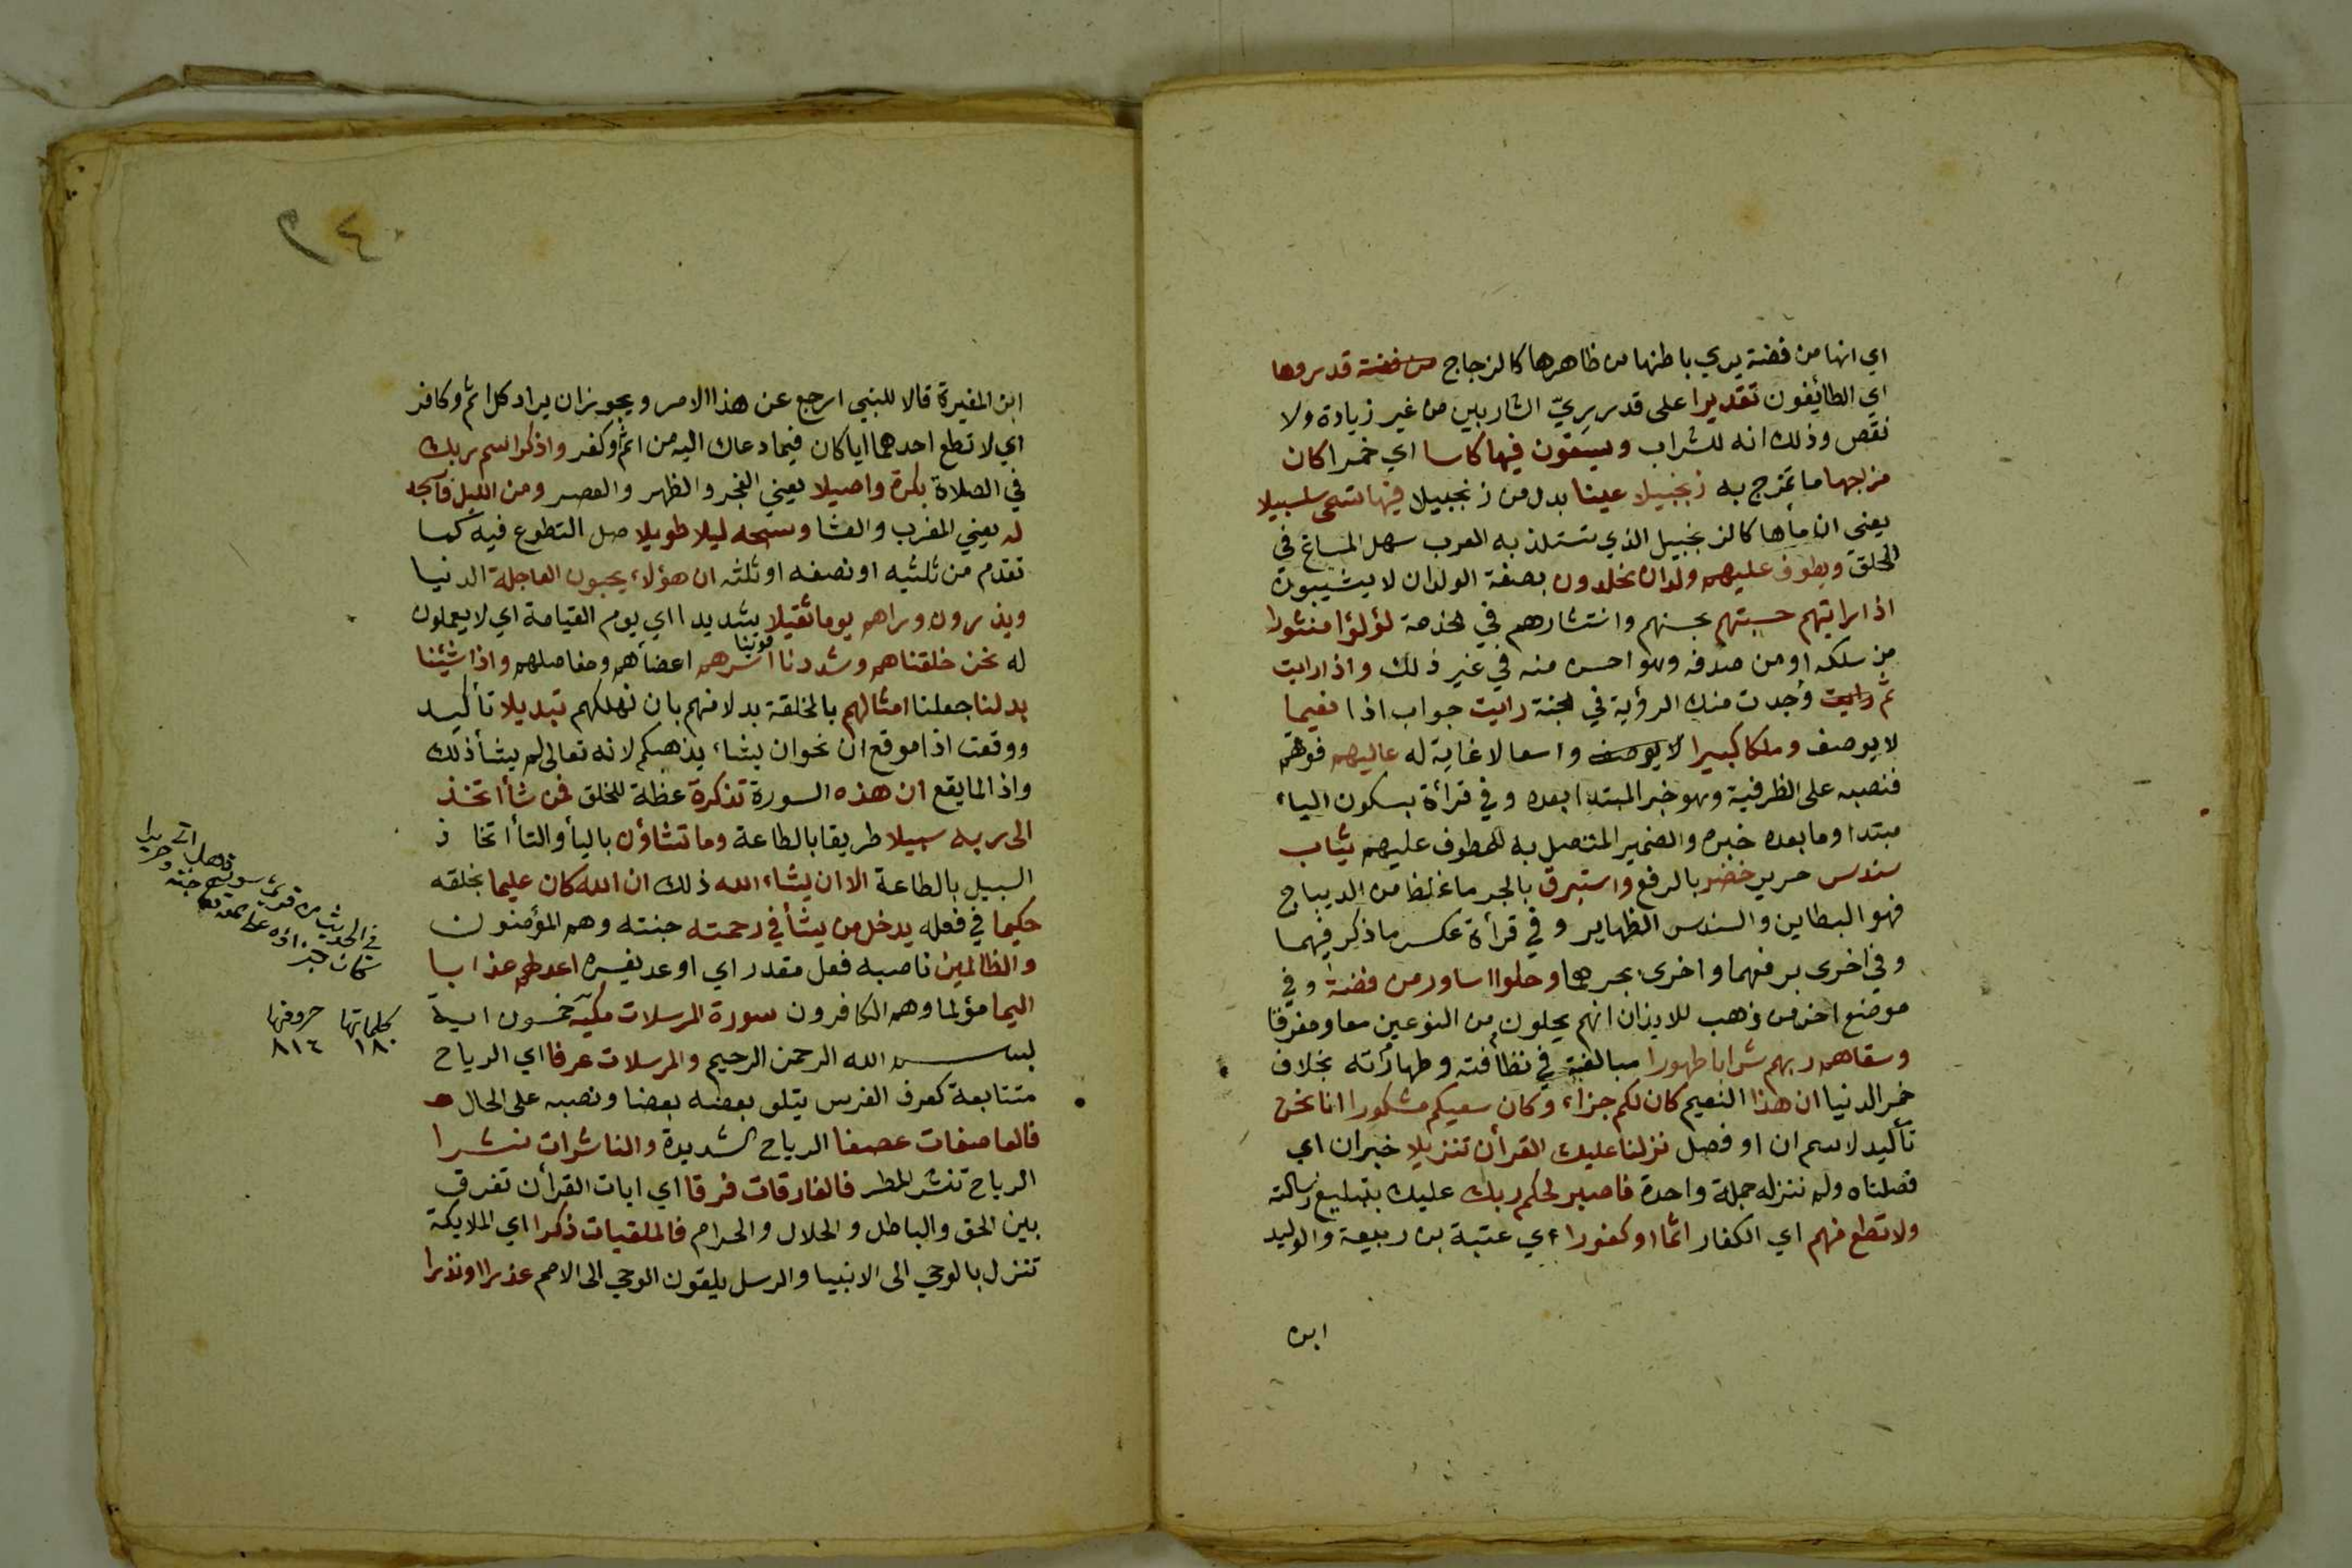 اي انها من فضة يري باطنها من ظاهرها كالزجاج من فضة قدروها
اي الطائفون تقديرا على قدر ريّ الشاربين من غير زيادة ولا
نقص وذلك انه للشراب ويسقون فيها كاسا اي خمرا كان
مزاجها ما تمزج به زنجبيلا عينا بدل من زنجبيلا فيها تسمى سلسبيلا
يعني ان ماها كالزنجبيل الذي تستلذ به العرب سهل المساغ في
الحلق ويطوف عليهم ولدان مخلدون بصفة الولدان لا يشيبون
اذا رايتهم حسبتهم بحسنهم وانتشارهم في الخدمة لؤلؤا منثورا
من سلكه او من صدفه وهو احسن منه في غير ذلك واذا رايت
ثم رايت وجدت منك الرؤية في الجنة رايت جواب اذا نعيما
لا يوصف وملكا كبيرا لا يوصف واسعا لا غاية له عاليهم فوقهم
فنصبه على الظرفية وهو خبر المبتدا بعده وفي قرأة بسكون الياء
مبتدا وما بعده خبره والضمير المتصل به للمطوف عليهم ثياب
سندس حرير خضر بالرفع واستبرق بالجر ما غلظ من الديباج
فهو البطاين والسندس الظهاير وفي قرأة عكس ما ذكر فيهما
وفي اخرى برفعهما واخرى بجرهما وحلوا اساور من فضة وفي
موضع اخر من ذهب للايذان انهم يحلون من النوعين معا ومفرقا
وسقاهم ربهم شرابا طهورا مبالغة في نظافته وطهارته بخلاف
خمر الدنيا ان هذا النعيم كان لكم جزاء وكان سعيكم مشكورا انا نحن
تأكيد لاسم ان او فصل نزلنا عليك القرأن تنزيلا خبر ان اي
فصلناه ولم ننزله جملة واحدة فاصبر لحكم ربك عليك بتبليغ رسالته
ولا تطع منهم اي الكفار اثما او كفورا اي عتبة بن ربيعة والوليد
ابن
٢٤٠
ابن المغيرة قالا للنبي ارجع عن هذا الامر ويجوز ان يراد كل اثم وكافر
اي لا تطع احدهما ايا كان فيما دعاك اليه من اثم او كفر واذكر اسم ربك
في الصلاة بكرة واصيلا يعني الفجر والظهر والعصر ومن الليل فاسجد
له يعني المغرب والعشا وسبحه ليلا طويلا صل التطوع فيه كما
تقدم من ثلثيه او نصفه او ثلثه ان هؤلاء يحبون العاجلة الدنيا
ويذرون وراهم يوما ثقيلا شديدا اي يوم القيامة اي لا يعملون
له نحن خلقناهم وشددنا قوينا اسرهم اعضأهم ومفاصلهم واذا شئنا
بدلنا جعلنا امثالهم بالخلقة بدلا منهم بان نهلكهم تبديلا تأكيد
ووقعت اذا موقع ان نحو ان يشاء يذهبكم لانه تعالى لم يشأ ذلك
واذا لما يقع ان هذه السورة تذكرة عظة للخلق فمن شأ اتخذ
الى ربه سبيلا طريقا بالطاعة وما تشاؤن باليأ والتأ اتخاذ
السبيل بالطاعة الا ان يشاء الله ذلك ان الله كان عليما بخلقه
حكيما في فعله يدخل من يشأ في رحمته جنته وهم المؤمنون
والظالمين ناصبه فعل مقدر اي اوعد يفسره اعد لهم عذابا
اليما مؤلما وهم الكافرون سورة المرسلات مكية خمسون اية
بسم الله الرحمن الرحيم والمرسلات عرفا اي الرياح
متتابعة كعرف الفرس يتلو بعضه بعضا ونصبه على الحال
فالعاصفات عصفا الرياح الشديدة والناشرات نشرا
الرياح تنشر المطر فالفارقات فرقا اي ايات القرأن تفرق
بين الحق والباطل والحلال والحرام فالملقيات ذكرا اي الملايكة
تنزل بالوحي الى الانبيا والرسل يلقون الوحي الى الامم عذرا او نذرا
في الحديث من قرء سورة هل اتى
كان جزاؤه على الله تعالى جنة وحريرا
كلماتها حروفها
١٨٠ ٨١٤